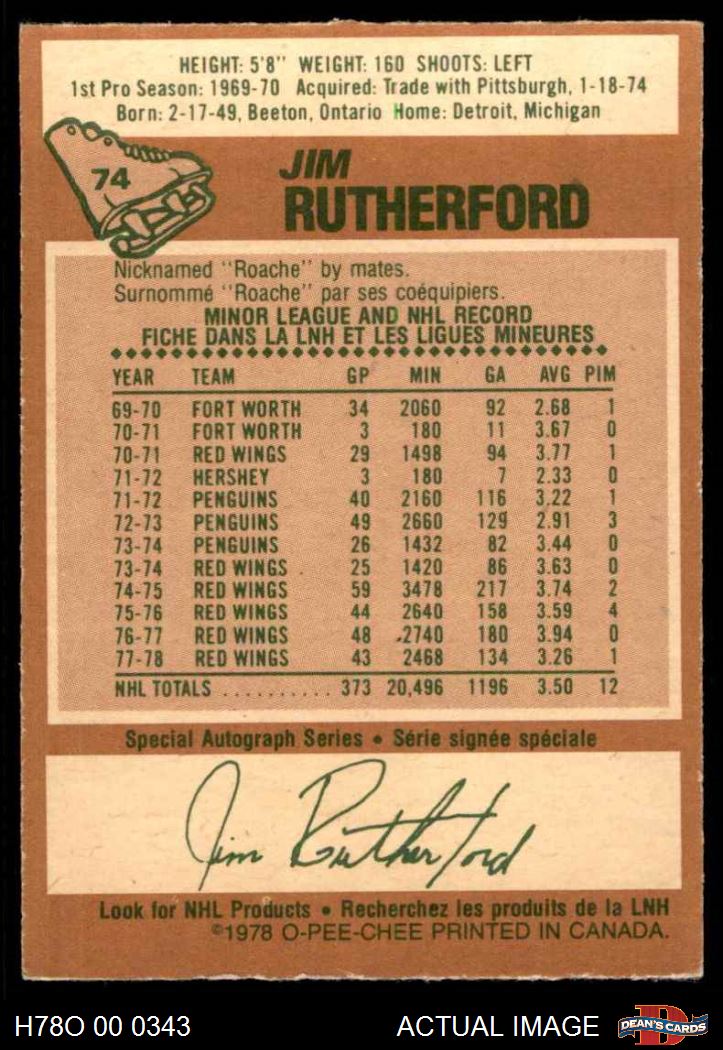 HEIGHT: 5'8" WEIGHT: 160 SHOOTS: LEFT
1st Pro Season: 1969-70 Acquired: Trade with Pittsburgh, 1-18-74
Born: 2-17-49, Beeton, Ontario Home: Detroit, Michigan
74
JIM
RUTHERFORD
Nicknamed "Roache" by mates.
Surnommé "Roache" par ses coéquipiers.
MINOR LEAGUE AND NHL RECORD
FICHE DANS LA LNH ET LES LIGUES MINEURES
YEAR TEAM GP MIN GA AVG PIM
69-70 FORT WORTH 34 2060 92 2.68 1
70-71 FORT WORTH 3 180 11 3.67 0
70-71 RED WINGS 29 1498 94 3.77 1
71-72 HERSHEY 3 180 7 2.33 0
71-72 PENGUINS 40 2160 116 3.22 1
72-73 PENGUINS 49 2660 129 2.91 3
73-74 PENGUINS 26 1432 82 3.44 0
73-74 RED WINGS 25 1420 86 3.63 0
74-75 RED WINGS 59 3478 217 3.74 2
75-76 RED WINGS 44 2640 158 3.59 4
76-77 RED WINGS 48 2740 180 3.94 0
77-78 RED WINGS 43 2468 134 3.26 1
NHL TOTALS .......... 373 20,496 1196 3.50 12
Special Autograph Series • Série signée spéciale
Jim Rutherford
Look for NHL Products • Recherchez les produits de la LNH
©1978 O-PEE-CHEE PRINTED IN CANADA.
H78O 00 0343 ACTUAL IMAGE D DEAN'S CARDS